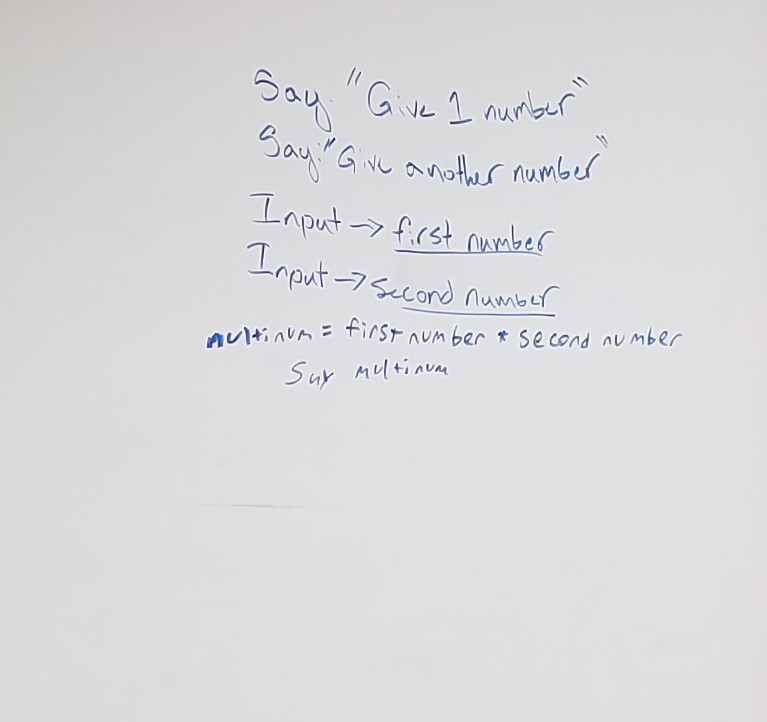 Say: "Give 1 number"
Say: "Give another number"
Input → first number
Input → second number
multinum = first number * second number
Say multinum